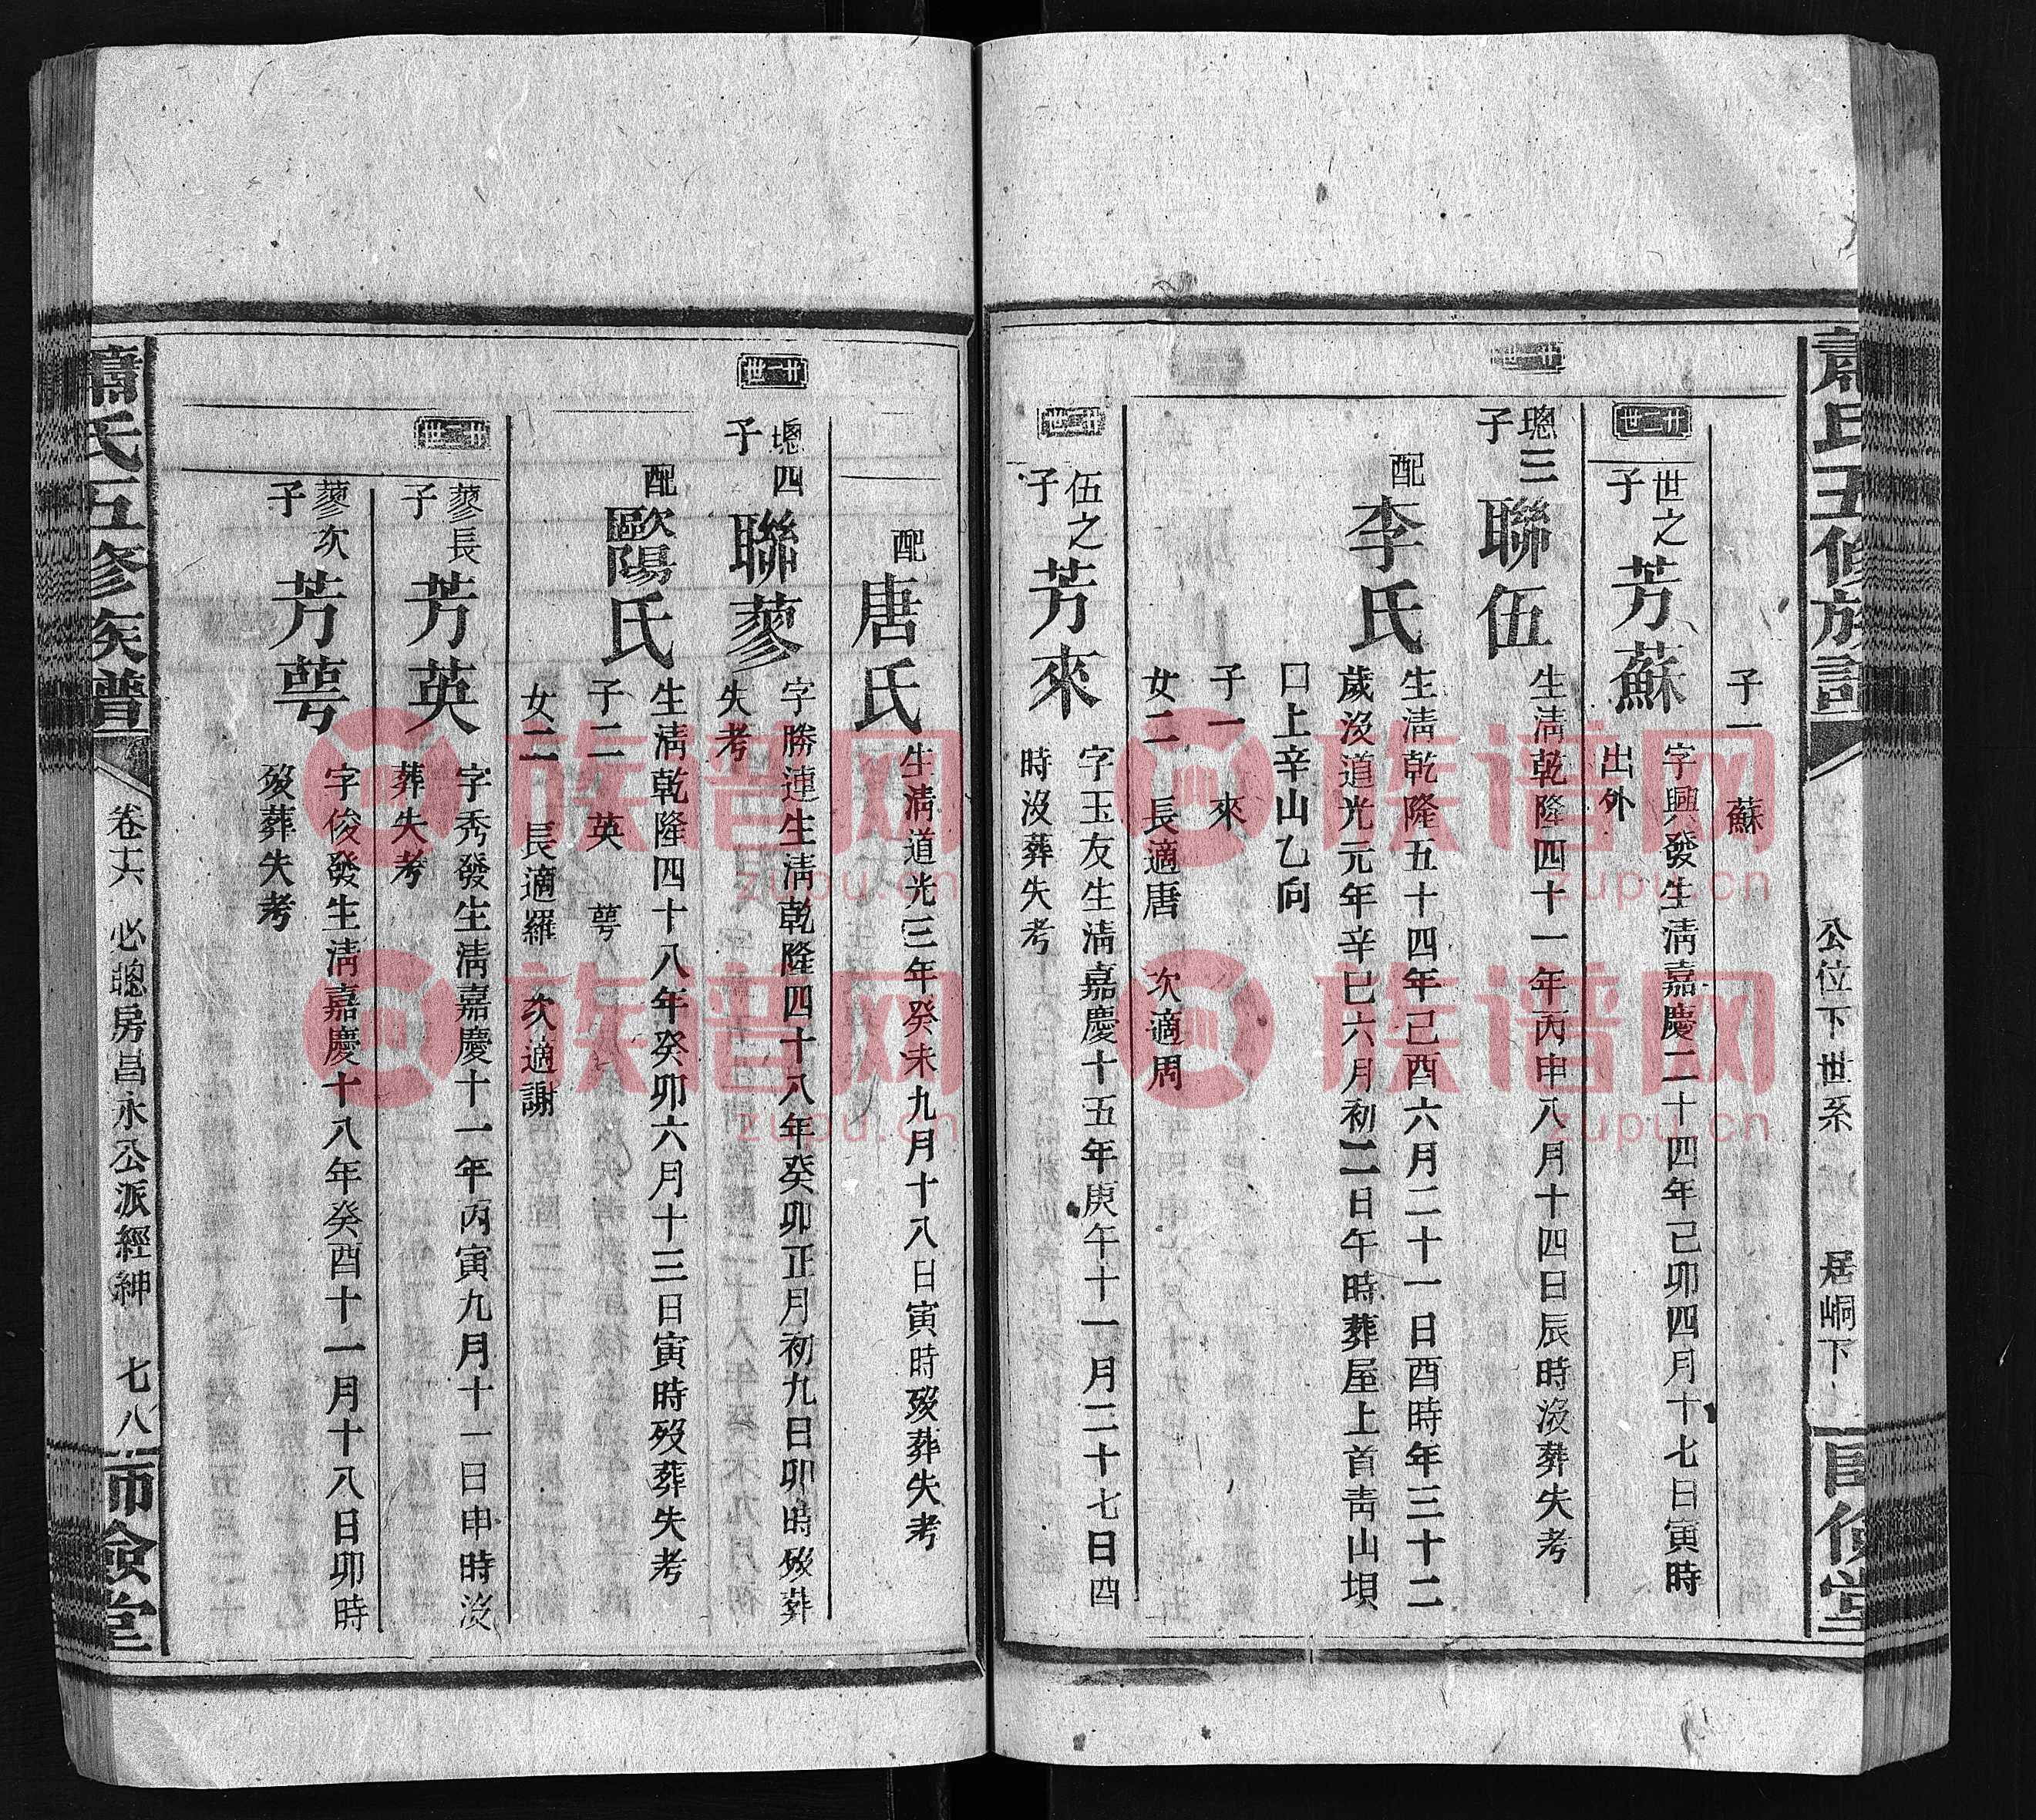 公位下世系
居峒下
子一　蘇
廿二世
世之子
芳蘇
字興發生淸嘉慶二十四年己卯四月十七日寅時
出外
廿一世
璁三子
聯伍
生淸乾隆四十一年丙申八月十四日辰時沒葬失考
配
李氏
生淸乾隆五十四年己酉六月二十一日酉時年三十二
歲沒道光元年辛巳六月初二日午時葬屋上首靑山垻
口上辛山乙向
子一　來
女二　長適唐　次適周
廿二世
伍之子
芳來
字玉友生淸嘉慶十五年庚午十一月二十七日酉
時沒葬失考
配
唐氏
生淸道光三年癸未九月十八日寅時歿葬失考
廿一世
璁四子
聯蓼
字勝連生淸乾隆四十八年癸卯正月初九日卯時歿葬
失考
配
歐陽氏
生淸乾隆四十八年癸卯六月十三日寅時歿葬失考
子二　英　萼
女二　長適羅　次適謝
廿二世
蓼長子
芳英
字秀發生淸嘉慶十一年丙寅九月十一日申時沒
葬失考
蓼次子
芳萼
字俊發生淸嘉慶十八年癸酉十一月十八日卯時
歿葬失考
蕭氏五修族譜
必璁房昌永公派經紳
七八
師儉堂
族谱网
zupu.cn
族谱网
zupu.cn
族谱网
zupu.cn
族谱网
zupu.cn